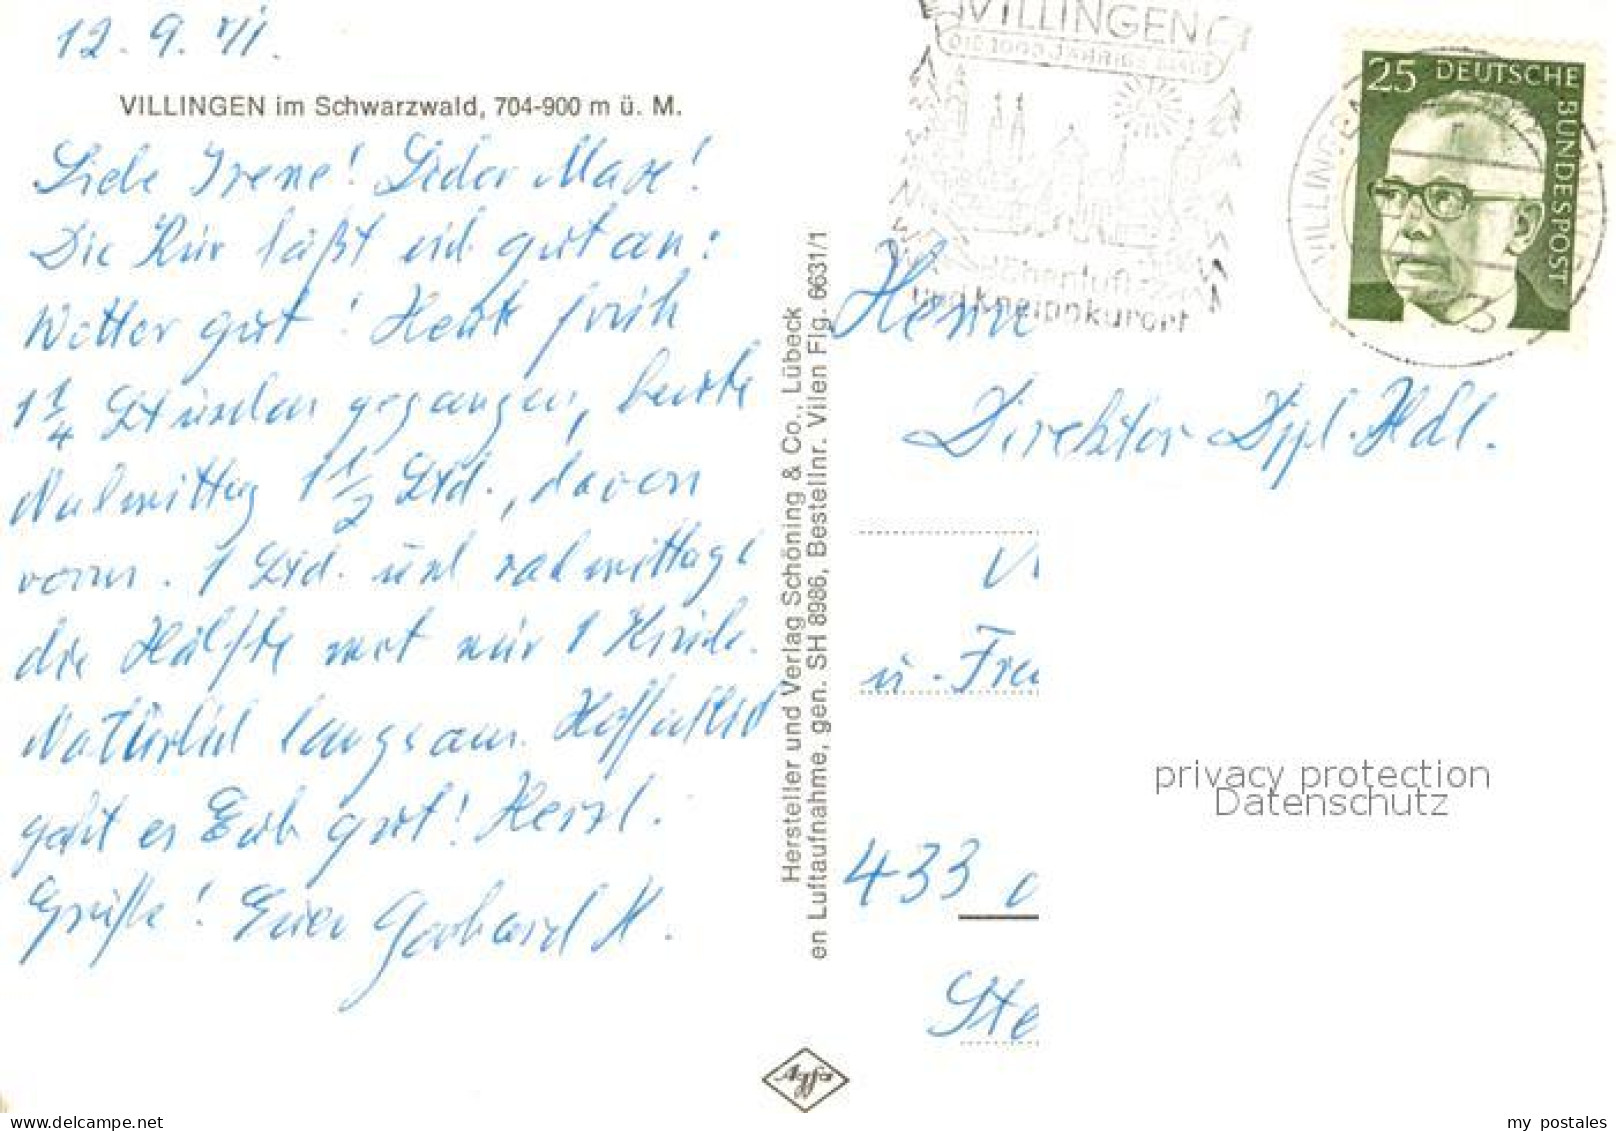 12. 9. 71.
VILLINGEN im Schwarzwald, 704-900 m ü. M.
Liebe Irene! Lieber Max!
Die Kur läßt sich gut an:
Wetter gut! Heute früh
1 1/4 Stunden gegangen, heute
Nachmittag 1 1/2 Std., davon
vorm. 1 Std. und nachmittags
die Hälfte mit nur 1 Krücke.
Natürlich langsam. Hoffentlich
geht es Euch gut! Herzl.
Grüße! Euer Gerhard H.
Hersteller und Verlag Schöning & Co., Lübeck
en Luftaufnahme, gen. SH 8986, Bestellnr. Vilen Flg. 6631/1
Agfa
VILLINGEN
DIE 1000 JÄHRIGE STADT
Höhenluft-
und Kneippkurort
25 DEUTSCHE
BUNDESPOST
VILLINGEN
Herrn
Direktor Dipl. Hdl.
u. Frau
433
Ste
privacy protection
Datenschutz
www.delcampe.net
my_postales